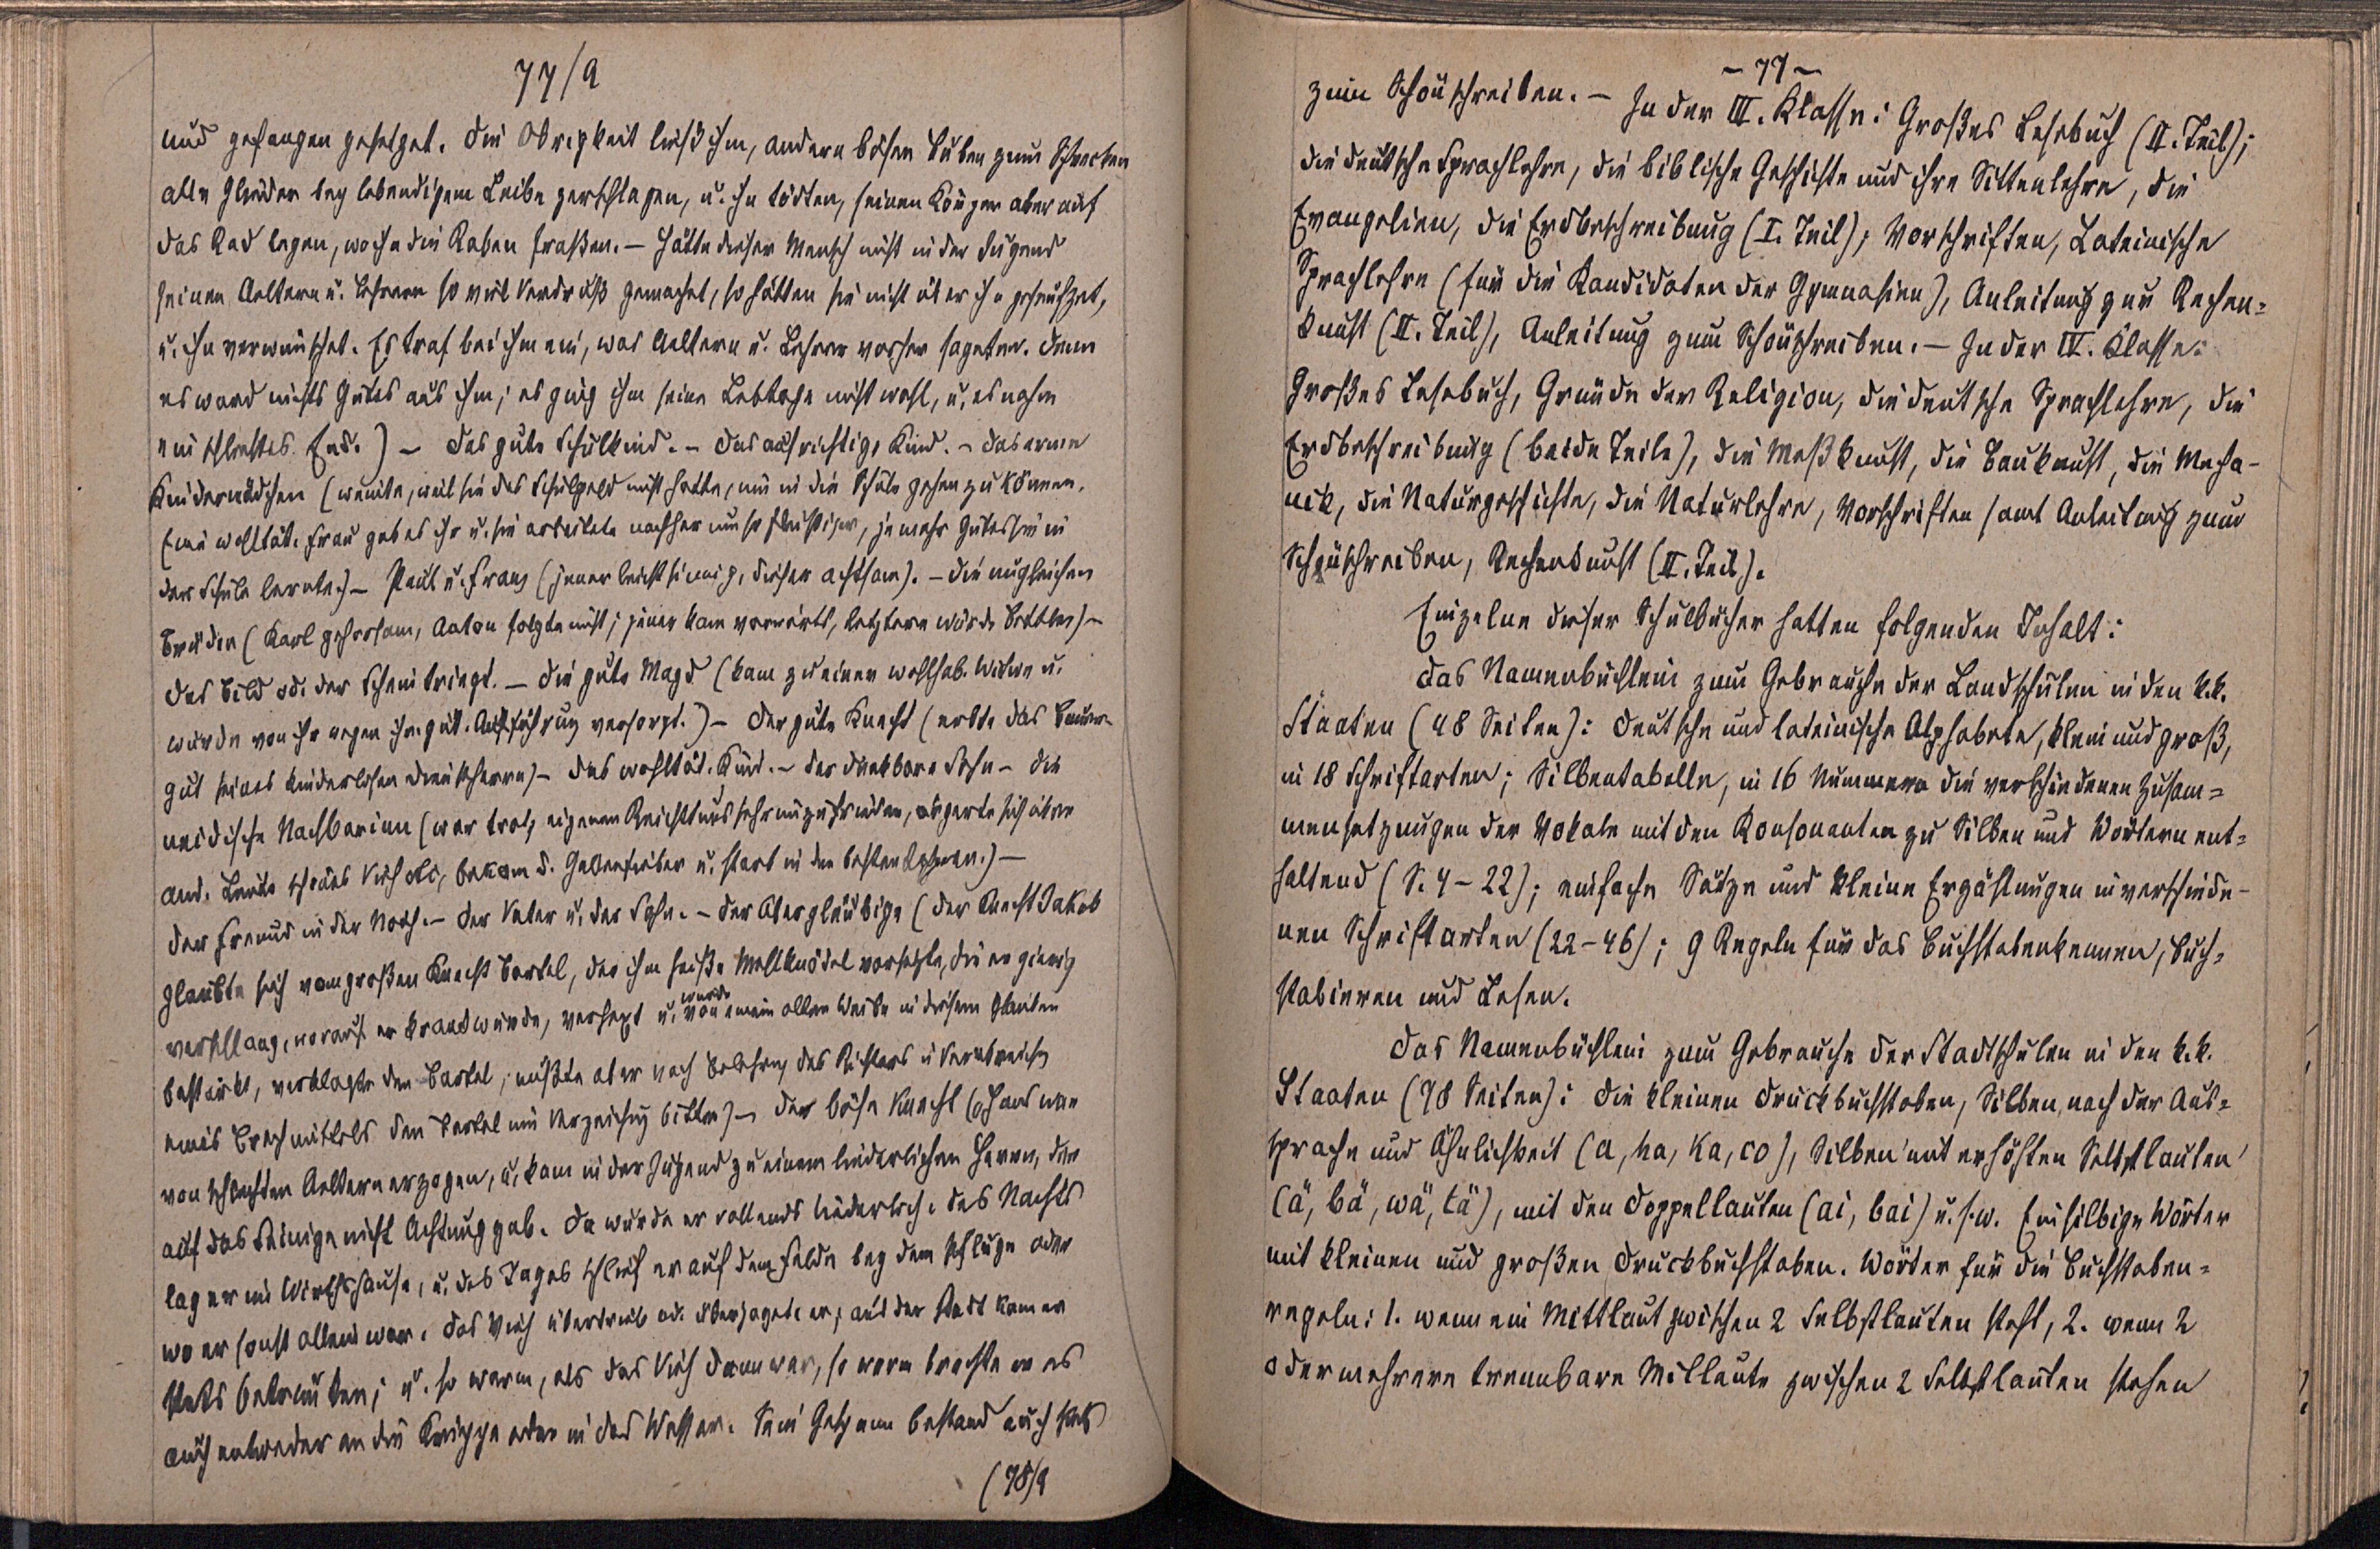 77/a
und gefangen gesetzet. Die Obrigkeit ließ ihm, andern bösen Buben zum Schrecken
alle Glieder bey lebendigem Leibe zerschlagen, u. ihn tödten, seinen Körper aber auf
das Rad legen, wo ihn die Raben fraßen. – Hätte dieser Mensch nicht in der Jugend
seinen Aeltern u. Lehrern so viel Verdruß gemachet, so hätten sie nicht über ihn geseufzet,
u. ihn verwünschet. Es traf bei ihm ein, was Aeltern u. Lehrer vorher sageten. Denn
es ward nichts Gutes aus ihm; es ging ihm seine Lebtage nicht wohl, u. es nahm
ein schlechtes End.) – Das gute Schulkind. – Das aufrichtige Kind. – Das arme
Kindermädchen (weinte, weil sie das Schulgeld nicht hatte, um in die Schule gehen zu können.
Eine wohltät. Frau gab es ihr u. sie arbeitete nachher um so fleißiger, je mehr Gutes sie in
der Schule lernte.) – Paul u. Franz (jener leichtsinnig, dieser achtsam). – Die ungleichen
Brüder (Karl gehorsam, Anton folgte nicht; jener kam vorwärts, letzterer wurde Bettler) –
Das Bild od. der Schein triegt. – Die gute Magd (kam zu einer wohlhab. Witwe u.
wurde von ihr wegen ihr. gut. Aufführung versorgt.) – Der gute Knecht (erbte das Bauern-
gut seines kinderlosen Dienstherrn) – Das wohltät. Kind. – Der dankbare Sohn – Die
neidische Nachbarinn (war trotz eigenen Reichtums sehr unzufrieden, ärgerte sich über
and. Leute schönes Vieh etc, bekam d. Gallenfieber u. starb in den besten Jahren.) –
Der Freund in der Noth. – Der Vater u. der Sohn. – Der Abergläubige (der Knecht Jakob
glaubte sich vom großen Knecht Bartel, der ihm heiße Mehlknödel vorsetzte, die er gierig
verschlang, worauf er krank wurde, verhext u. wurde von einem alten Weibe in diesem Glauben
bestärkt, verklagte den Bartel, mußte aber nach Belehrung des Richters u Verabreichg
eines Brechmittels den Bartel um Verzeihung bitten) – Der böse Knecht (Hans war
von schlechten Aeltern erzogen, u. kam in der Jugend zu einem liederlichen Herrn, der
auf das Seinige nicht Achtung gab. Da wurde er vollends liederlich. Des Nachts
lag er im Wirthshause, u. des Tages schlief er auf dem Felde bey dem Pfluge oder
wo er sonst allein war. Das Vieh übertrieb od. überjagete er; aus der Stadt kam er
stets betrunken; u. so warm, als das Vieh dann war, so warm brachte er es
auch entweder an die Krippe oder in das Wasser. Sein Gespann bestand auch stets
(78/a
– 77 –
zum Schönschreiben. – In der III. Klasse: Großes Lesebuch (II. Teil);
die deutsche Sprachlehre, die biblische Geschichte und ihre Sittenlehre, die
Evangelien, die Erdbeschreibung (I. Teil); Vorschriften, Lateinische
Sprachlehre (für die Kandidaten der Gymnasien), Anleitung zur Rechen=
kunst (II. Teil), Anleitung zum Schönschreiben. – In der IV. Klasse:
Großes Lesebuch, Gründe der Religion, die deutsche Sprachlehre, die
Erdbeschreibung (beide Teile), die Meßkunst, die Baukunst, die Mecha-
nik, die Naturgeschichte, die Naturlehre, Vorschriften samt Anleitung zum
Schönschreiben, Rechenkunst (II. Teil).
Einzelne dieser Schulbücher hatten folgenden Inhalt:
Das Namenbüchlein zum Gebrauche der Landschulen in den k.k.
Staaten (48 Seiten): Deutsche und lateinische Alphabete, klein und groß,
in 18 Schriftarten; Silbentabelle, in 16 Nummern die verschiedenen Zusam=
mensetzungen der Vokale mit den Konsonanten zu Silben und Wörtern ent=
haltend (S. 4–22); einfache Sätze und kleine Erzählungen in verschiede-
nen Schriftarten (22–46); 9 Regeln für das Buchstabenkennen, Buch=
stabieren und Lesen.
Das Namenbüchlein zum Gebrauche der Stadtschulen in den k.k.
Staaten (78 Seiten): Die kleinen Druckbuchstaben, Silben nach der Aus=
sprache und Ähnlichkeit (a, ha, ka, co), Silben mit erhöhten Selbstlauten
(ä, bä, wä, tä), mit den Doppellauten (ai, bai) u.s.w. Einsilbige Wörter
mit kleinen und großen Druckbuchstaben. Wörter für die Buchstaben=
regeln: 1. wenn ein Mittlaut zwischen 2 Selbstlauten steht, 2. wenn 2
oder mehrere trennbare Mitlaute zwischen 2 Selbstlauten stehen